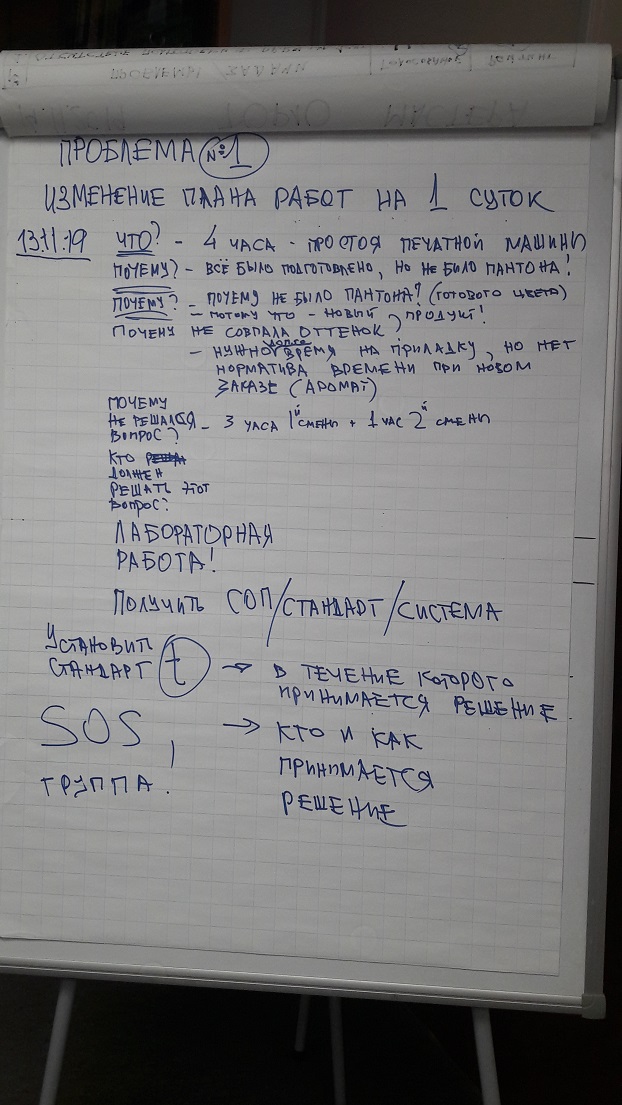 ПРОБЛЕМЫ / ЗАДАЧИ
ГОРЮ МАСТЕРА
ПРОБЛЕМА №1
ИЗМЕНЕНИЕ ПЛАНА РАБОТ НА 1 СУТОК
13.11.19 ЧТО? - 4 ЧАСА - ПРОСТОЯ ПЕЧАТНОЙ МАШИНЫ
ПОЧЕМУ? - ВСЁ БЫЛО ПОДГОТОВЛЕНО, НО НЕ БЫЛО ПАНТОНА!
ПОЧЕМУ? - ПОЧЕМУ НЕ БЫЛО ПАНТОНА? (ГОТОВОГО ЦВЕТА)
- ПОТОМУ ЧТО - НОВЫЙ ПРОДУКТ!
ПОЧЕМУ НЕ СОВПАЛА ОТТЕНОК?
- НУЖНО ВРЕМЯ НА ПРИЛАДКУ, НО НЕТ
НОРМАТИВА ВРЕМЕНИ ПРИ НОВОМ
ЗАКАЗЕ (АРОМАТ)
ПОЧЕМУ
НЕ РЕШАЛСЯ - 3 ЧАСА 1й СМЕНЫ + 1 ЧАС 2й СМЕНЫ
ВОПРОС?
КТО
ДОЛЖЕН
РЕШАТЬ ЭТОТ
ВОПРОС?
ЛАБОРАТОРНАЯ
РАБОТА!
ПОЛУЧИТЬ СОП/СТАНДАРТ/СИСТЕМА
УСТАНОВИТЬ
СТАНДАРТ t → В ТЕЧЕНИЕ КОТОРОГО
ПРИНИМАЕТСЯ РЕШЕНИЕ
SOS, → КТО И КАК
ГРУППА! ПРИНИМАЕТСЯ
РЕШЕНИЕ